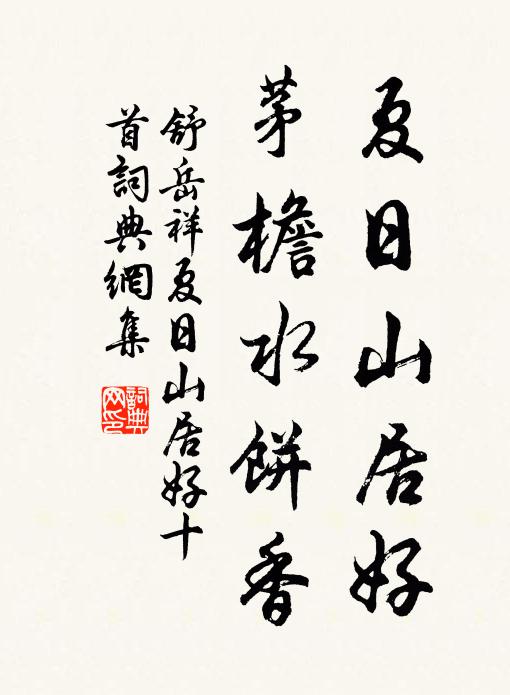 夏日山居好
茅檐水餅香
舒岳祥夏日山居好十
首詞典網集
詞典
网印